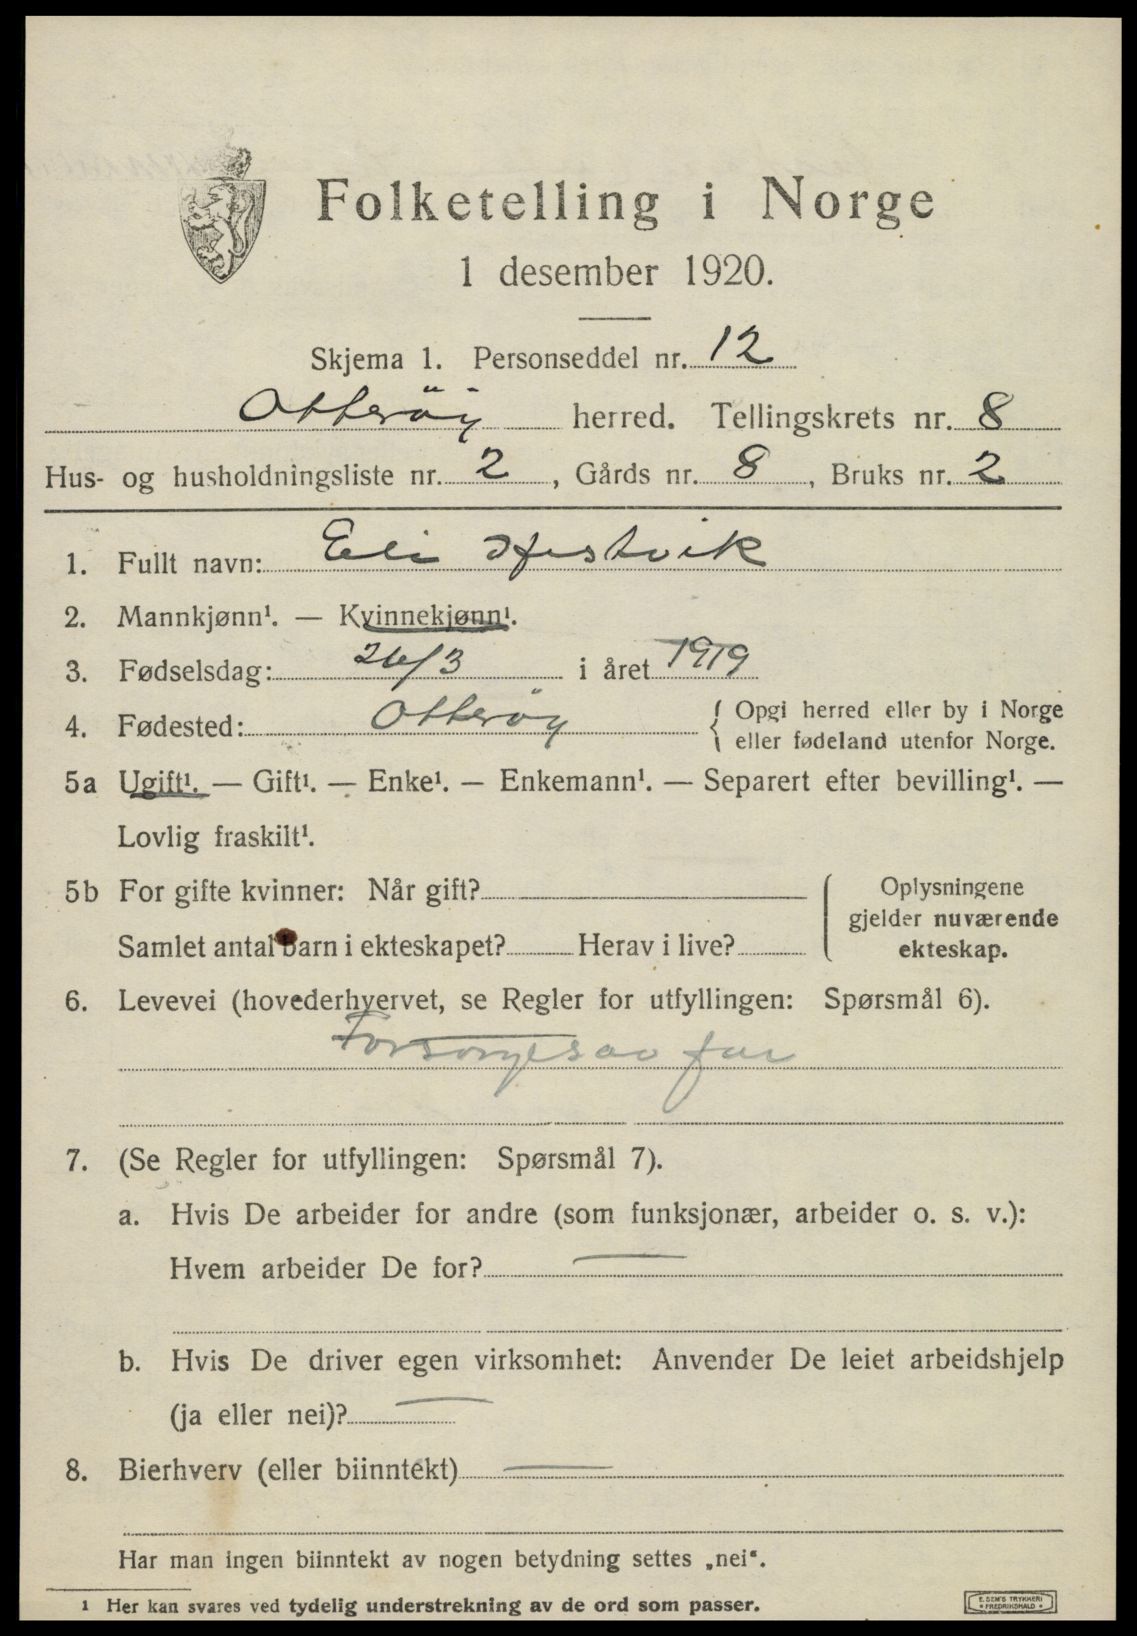 Folketelling i Norge
1 desember 1920.
Skjema 1. Personseddel nr. 12
Otterøy herred. Tellingskrets nr. 8
Hus- og husholdningsliste nr. 2, Gårds nr. 8, Bruks nr. 2
1. Fullt navn: Eli Hestvik
2. Mannkjønn¹. — Kvinnekjønn¹.
3. Fødselsdag: 26/3 i året 1919
4. Fødested: Otterøy { Opgi herred eller by i Norge
eller fødeland utenfor Norge.
5a Ugift¹. — Gift¹. — Enke¹. — Enkemann¹. — Separert efter bevilling¹. —
Lovlig fraskilt¹.
5b For gifte kvinner: Når gift?
Samlet antal barn i ekteskapet? Herav i live?
Oplysningene
gjelder nuværende
ekteskap.
6. Levevei (hovederhvervet, se Regler for utfyllingen: Spørsmål 6).
Forsørges av far
7. (Se Regler for utfyllingen: Spørsmål 7).
a. Hvis De arbeider for andre (som funksjonær, arbeider o. s. v.):
Hvem arbeider De for? —
b. Hvis De driver egen virksomhet: Anvender De leiet arbeidshjelp
(ja eller nei)? —
8. Bierhverv (eller biinntekt) —
Har man ingen biinntekt av nogen betydning settes „nei“.
¹ Her kan svares ved tydelig understrekning av de ord som passer.
E. SEM'S TRYKKERI
FREDRIKSHALD